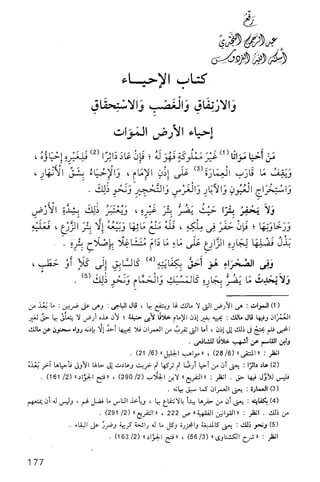 رَفْعُ
عبد الرحمن النجدي
أسكنه الله الفردوس
كتاب الإحيـــاء
وَالارْتِفَاقِ وَالْغَصْبِ وَالاسْتِحقَاقِ
إحياء الأرضِ المَوَات
مَنْ أَحْيَا مَوَاتًا (1) غَيْرَ مَمْلُوكَةٍ فَهْوَ لَهُ ؛ فَإِنْ عَادَ دَاثِرًا (2) فَلِغَيْرِهِ إِحْيَاؤُهُ ،
وَيَقِفُ مَا قَارَبَ الْعِمَارَةَ (3) عَلَى إِذْنِ الإِمَامِ ، وَالإِحْيَاءُ بِشَقِّ الأَنْهَارِ ،
وَاسْتِخْرَاجِ الْعُيُونِ وَالآبَارِ وَالْغَرْسِ وَالتَّحْجِيرِ وَنَحْوِ ذَلِكَ .
وَلاَ يَحْفِرُ بِئْرًا حَيْثُ يَضُرُّ بِئْرَ غَيْرِهِ ، وَيُعْتَبَرُ ذَلِكَ بِشِدَّةِ الأَرْضِ
وَرَخَاوَتِهَا ؛ فَإِنْ حَفَرَ فِي مِلْكِهِ ، فَلَهُ مَنْعُ مَائِهَا وَبَيْعُهُ إِلَّا بِئْرَ الزَّرْعِ ، فَعَلَيْهِ
بَذْلُ فَضْلِهَا لِجَارِهِ الزَّارِعِ عَلَى مَاءٍ مَا دَامَ مُتَشَاغِلًا بِإِصْلَاحِ بِئْرِهِ .
وَفِي الصَّحْرَاءِ هُوَ أَحَقُّ بِكِفَايَتِهِ (4) كَالسَّابِقِ إِلَى كَلَإٍ أَوْ حَطَبٍ ،
وَلاَ يُحْدِثُ مَا يَضُرُّ بِجَارِهِ كَالْمَسْبَكِ وَالْحَمَّامِ وَنَحْوِ ذَلِكَ (5) .
(1) الموات : هي الأرض التي لا مالك لها وينتفع بها ، قال الباجي : وهي على ضربين : ما بَعُدَ من
العُمْرَان وفيها قال مالك : تحييه بغير إذن الإمام خلافًا لأبي حنيفة ؛ لأن هذه أرض لا يتعلَّق بها حقٌّ لغير
المحيي فلم يحتج في ذلك إلى إذن ، أما التي تقرب من العمران فلا يحييها أحدٌ إلَّا بإذنه رواه سحنون عن مالك
وابن القاسم عن أشهب خلافًا للشافعي .
انظر : « المنتقى » (28/6) ، « مواهب الجليل » (21/6) .
(2) عاد داثرًا : يعني أن من أحيا أرضًا ثم تركها ثم خربت وعادت إلى حالها الأولى فأحياها آخر بَعْدَهُ
فليس للأوَّل فيها حق . انظر : « التفريع » لابن الجلَّاب (290/2) ، « فتح الجَوَاد » (161/2) .
(3) العمارة : يعني العمران كما سبق بيانه .
(4) بكفايته : يعني أن من حفرها يبدأ بالانتفاع بها ، ويأخذ الناس ما فضل لهم ، وليس له أن يمنعهم
من ذلك . انظر : « القوانين الفقهية » ص 222 ، « التفريع » (291/2) .
(5) ونحو ذلك : يعني كالمدبغة والمجزرة وكل ما له رائحة كريهة وضررٌ على البقاء .
انظر : « شرح الكشناوي » (56/3) ، « فتح الجَوَاد » (163/2) .
177